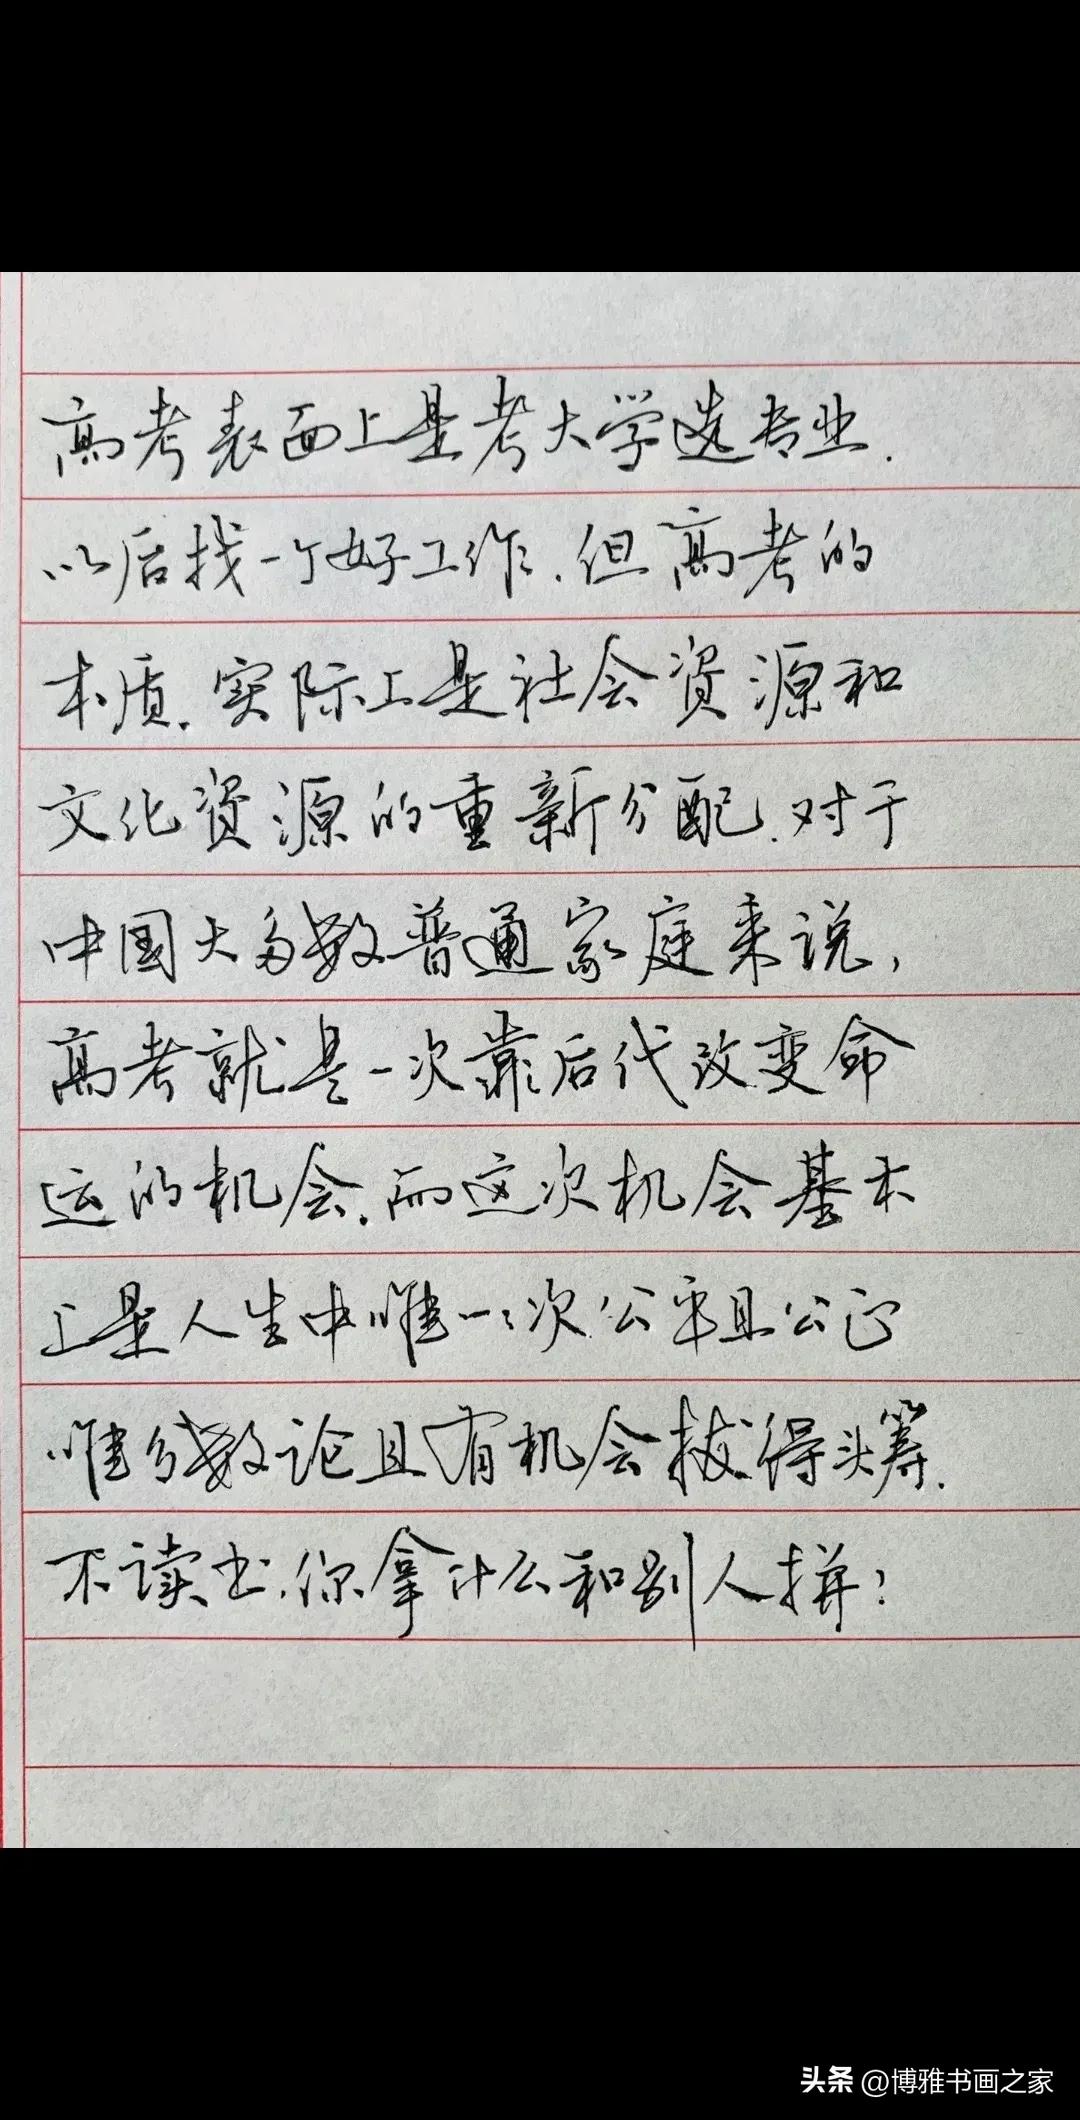 高考表面上是考大学选专业.
以后找一个好工作.但高考的
本质.实际上是社会资源和
文化资源的重新分配.对于
中国大多数普通家庭来说,
高考就是一次靠后代改变命
运的机会.而这次机会基本
上是人生中唯一一次公平且公正
唯分数论且有机会拔得头筹.
不读书.你拿什么和别人拼?
头条 @博雅书画之家